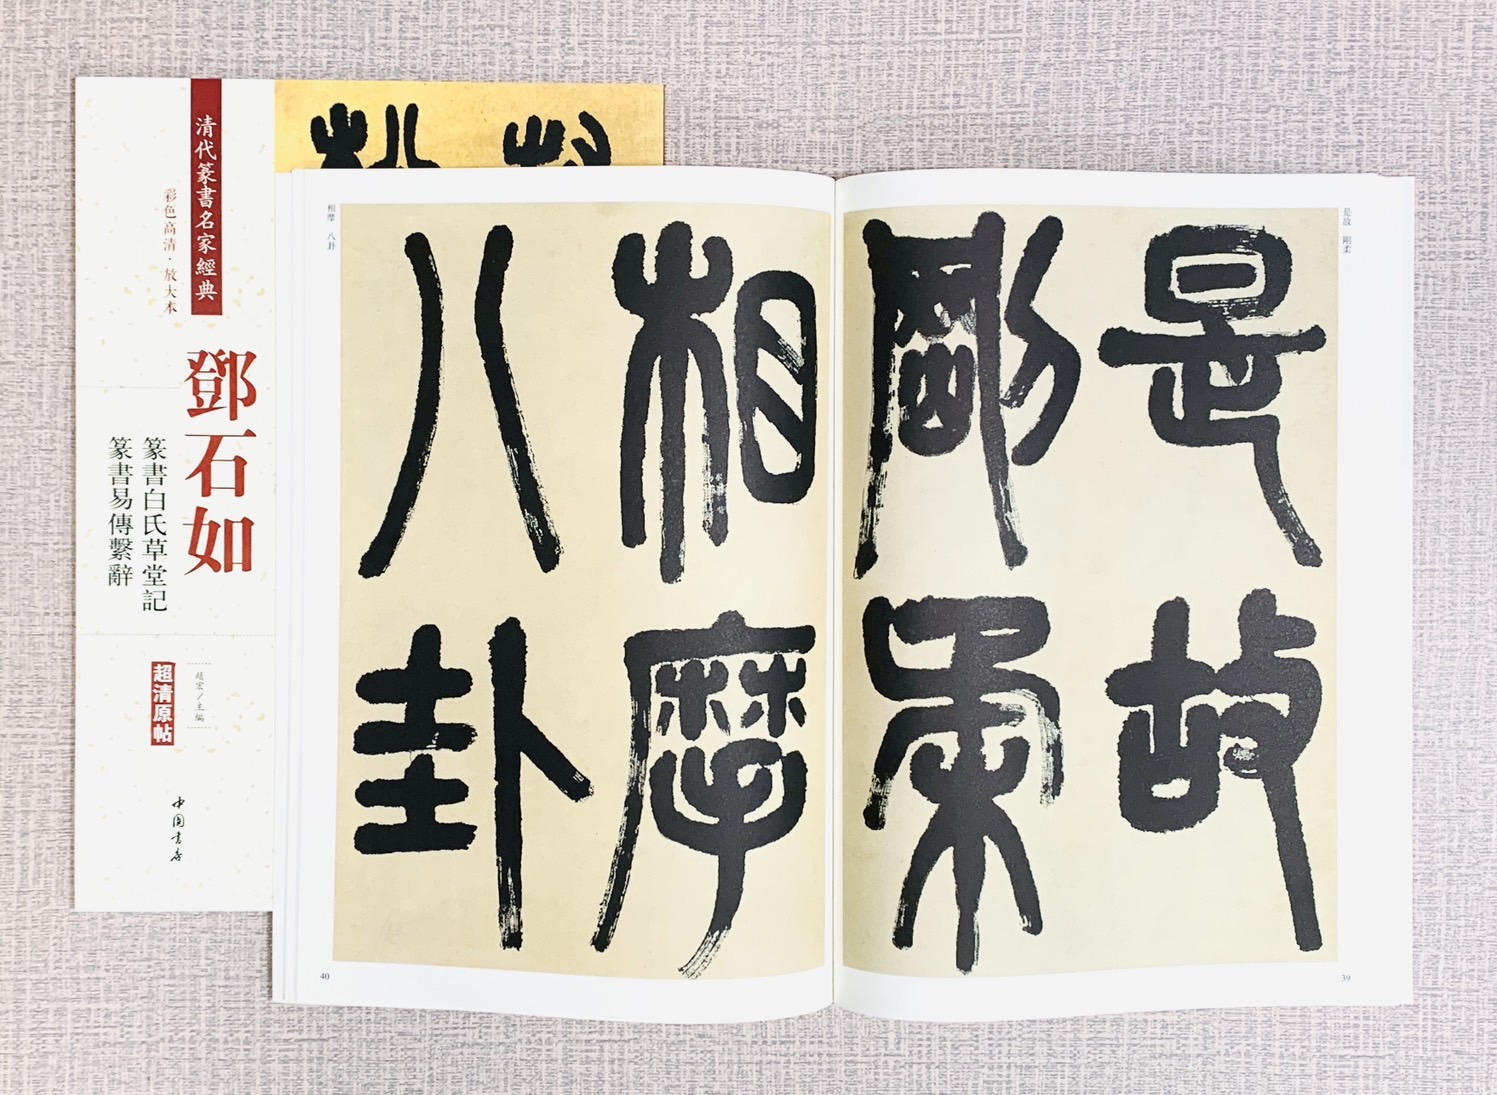 清代篆書名家經典
彩色高清·放大本
鄧石如
篆書白氏草堂記
篆書易傳繫辭
趙宏／主編
超清原帖
中國書店
是故 剛柔
是故
剛柔
39
相摩 八卦
相摩
八卦
40